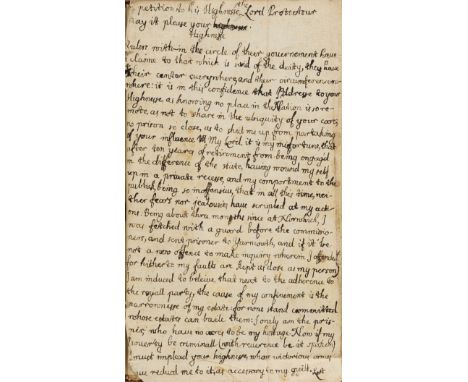 petition to his Highnesse the Lord Protectour
may it please your
Highness
Rulers with-in the circle of their governement have
a claime to that which is said of the deity, they have
their center everywhere and their circumference no
where: it is in this confidence that I addresse to your
Highnesse as knowing no place in the Nation is so re-
mote, as not to share in the ubiquity of your care,
no prison so close, as to shut me up from partaking
of your influence. My Lord, it is my misfortune, that
after ten years of retirement from being engaged
in the difference of the state, having wound my self
up in a private recesse, and my comportment to the
publick being so inoffensive, that in all this time, nei-
ther fears nor jealousies have scrupled at my acti-
ons. Being about three months since at Norwich, I
was fetched with a guard before the commissio-
ners, and sent prisoner to Yarmouth, and if it be
not a new offence to make inquiry wherein I offended
for hitherto my faults are kept as close as my person)
I am induced to beleive, that next to the adherence to
the royall party, the cause of my confinement is the
narrownesse of my estate, for none stand committed
whose estates can baile them: I only am the pris-
ner, who have no acres to be my hostage. Now if my
poverty be criminall (with reverence be it spoken)
I must implead your highnesse, whose victorious arms
have reduced me to it, as accessory to my guilt. Let